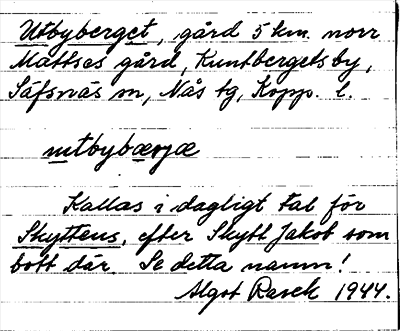 Utbyberget, gård 5 km. norr
Mattsas gård, Kuntbergets by,
Säfsnäs sn, Nås tg, Kopp. l.
utbybærjæ
Kallas i dagligt tal för
Skyttens, efter Skytt Jakob som
bott där. Se detta namn!
Algot 1944.